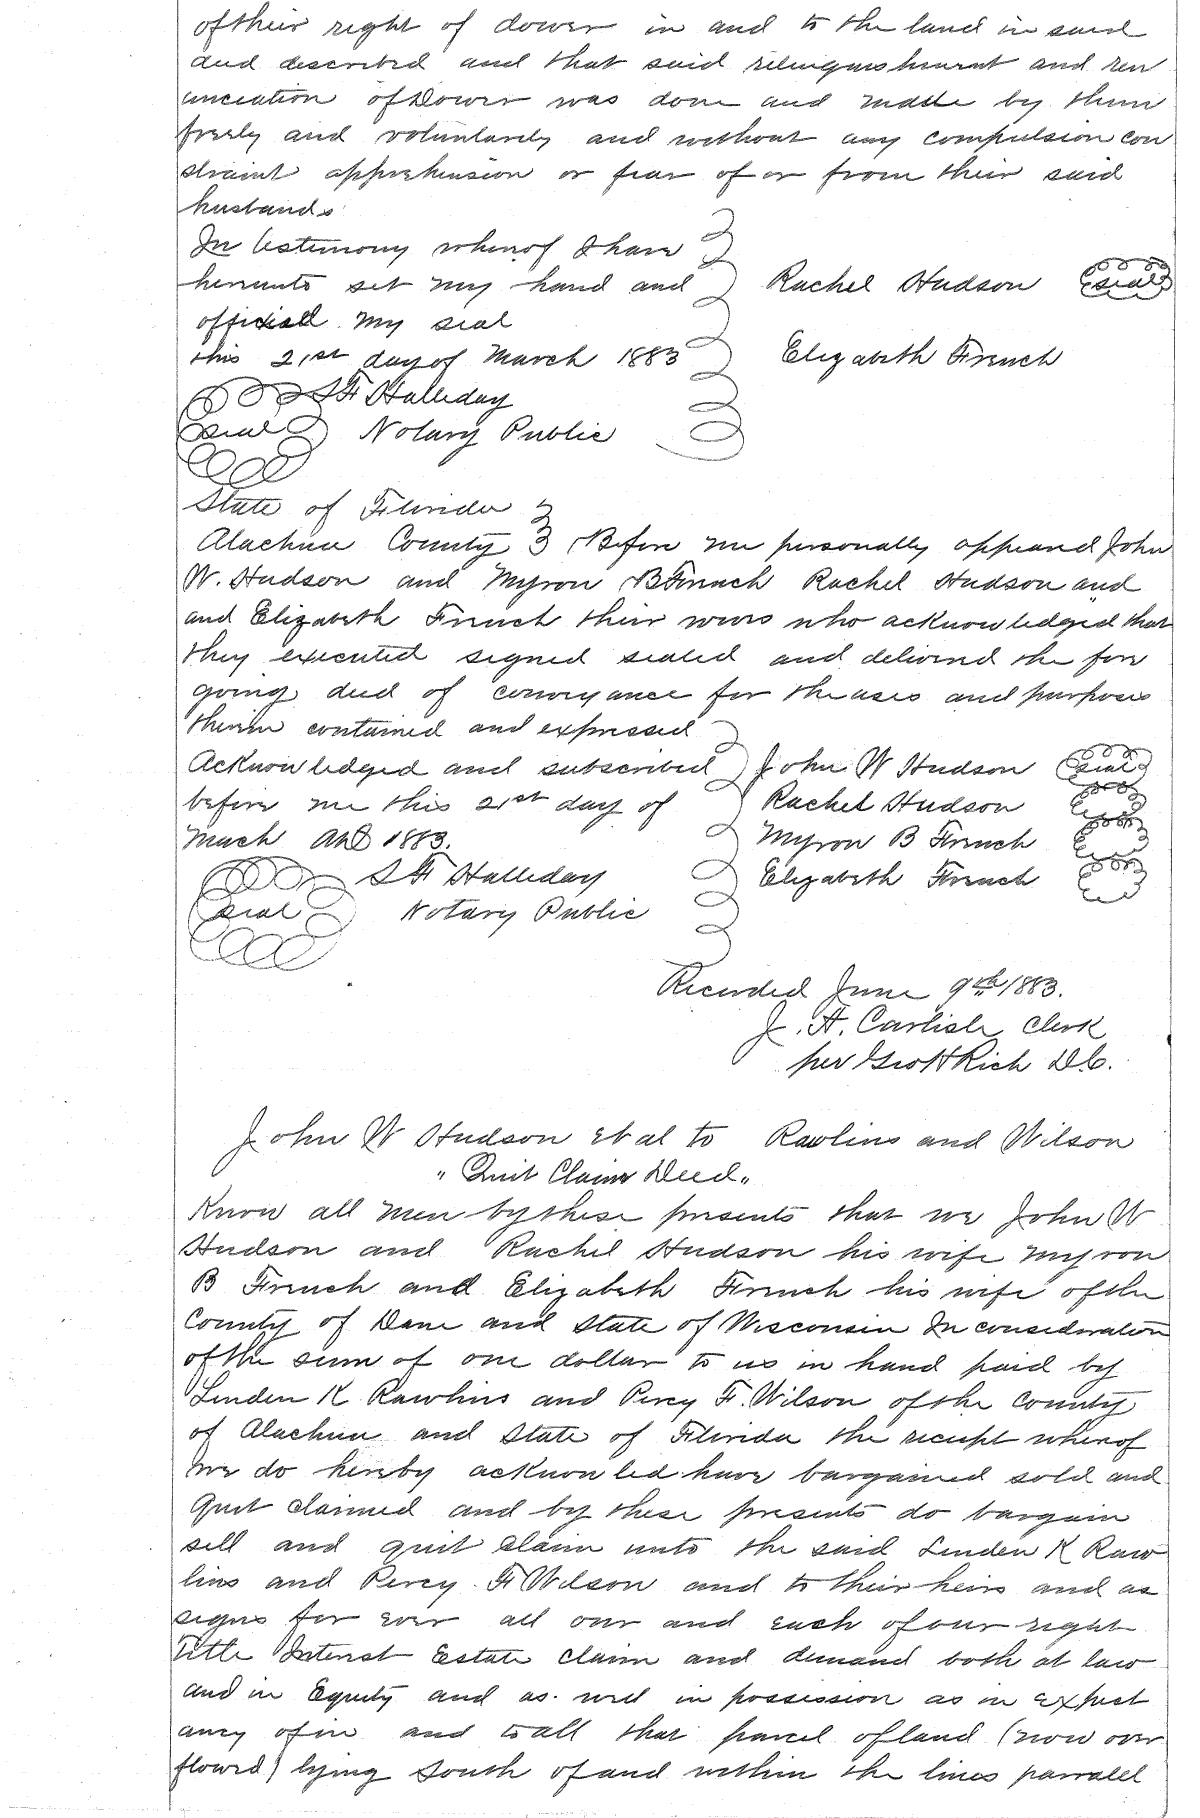 of their right of dower in and to the land in said
deed described and that said relinquishment and ren
unciation of Dower was done and made by them
freely and voluntarily and without any compulsion con
straint apprehension or fear of or from their said
husbands
In testimony whereof I have
hereunto set my hand and Rachel Hudson seal
official my seal
this 21st day of March 1883 Elizabeth French
S F Halliday
seal Notary Public
State of Florida
Alachua County Before me personally appeared John
W. Hudson and Myron B French Rachel Hudson and
and Elizabeth French their wives who acknowledged that
they executed signed sealed and delivered the fore
going deed of conveyance for the uses and purposes
therein contained and expressed
Acknowledged and subscribed John W Hudson seal
before me this 21st day of Rachel Hudson
March AD 1883. Myron B French
S F Halliday Elizabeth French
seal Notary Public
Recorded June 9th 1883.
J. A. Carlisle Clerk
per Geo H Rich D.C.
John W Hudson et al to Rawlins and Wilson
"Quit Claim Deed"
Know all men by these presents that we John W
Hudson and Rachel Hudson his wife Myron
B French and Elizabeth French his wife of the
County of Dane and State of Wisconsin In consideration
of the sum of one dollar to us in hand paid by
Linden K Rawlins and Percy F. Wilson of the County
of Alachua and State of Florida the receipt whereof
we do hereby acknowled have bargained sold and
Quit claimed and by these presents do bargain
sell and quit claim unto the said Linden K Raw
lins and Percy F Wilson and to their heirs and as
signs for ever all our and each of our right
Title Interest Estate claim and demand both at law
and in Equity and as well in possession as in expect
ancy of in and to all that parcel of land (now over
flowed) lying South of and within the lines parralel